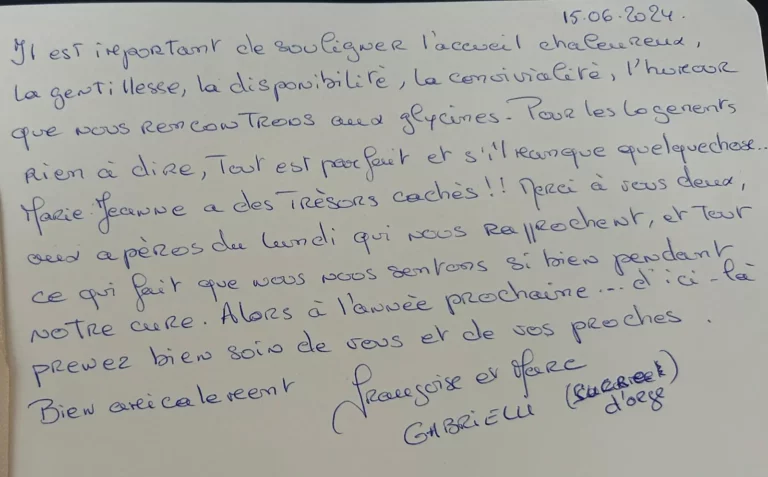 15.06.2024.
Il est important de souligner l'accueil chaleureux,
la gentillesse, la disponibilité, la convivialité, l'humour
que nous rencontrons aux glycines. Pour les logements
rien à dire, Tout est parfait et s'il manque quelquechose...
Marie Jeanne a des Trèsors cachès!! Merci à vous deux,
aux apéros du lundi qui nous rapprochent, et Tout
ce qui fait que nous nous sentons si bien pendant
notre cure. Alors à l'année prochaine... d'ici-là
prenez bien soin de vous et de vos proches.
Bien amicalement Françoise et Marc
GABRIELLI (sucre
d'orge)